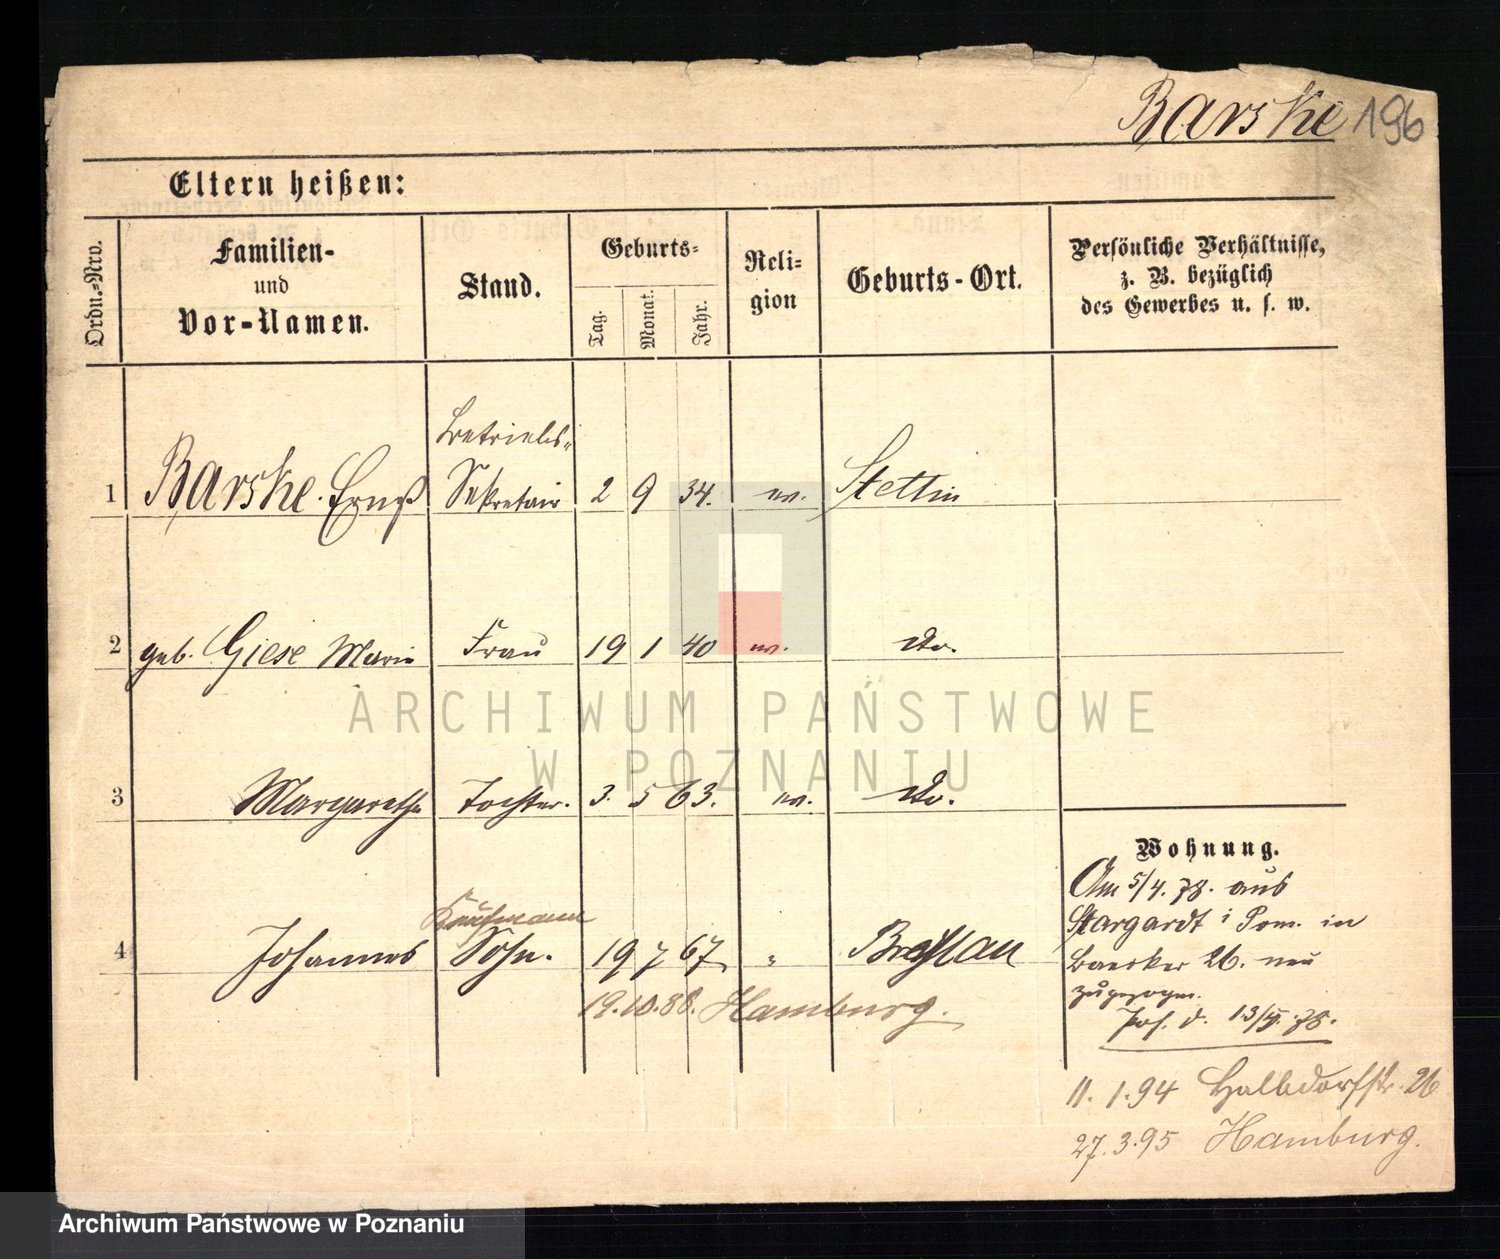 Barske 196
Eltern heißen:
Ordn.-Nro.
Familien-
und
Vor-Namen.
Stand.
Geburts-
Tag.
Monat.
Jahr.
Reli-
gion
Geburts-Ort.
Persönliche Verhältnisse,
z. B. bezüglich
des Gewerbes u. s. w.
Betriebs-
1 Barske Ernst Sekretair 2 9 34. ev. Stettin
2 geb. Giese Marie Frau 19 1 40 ev. do.
3 Margarethe Tochter. 3. 5 63. ev. do.
Kaufmann
4 Johannes Sohn. 19 7 67 " Breslau
19.10.88. Hamburg.
Wohnung.
Am 5/4. 78. aus
Stargardt i Pom. in
Baecker 26. neu
zugezogen.
Pos. d. 13/4. 78.
11. 1. 94 Halbdorfstr. 26
27. 3. 95 Hamburg.
ARCHIWUM PAŃSTWOWE
W POZNANIU
Archiwum Państwowe w Poznaniu